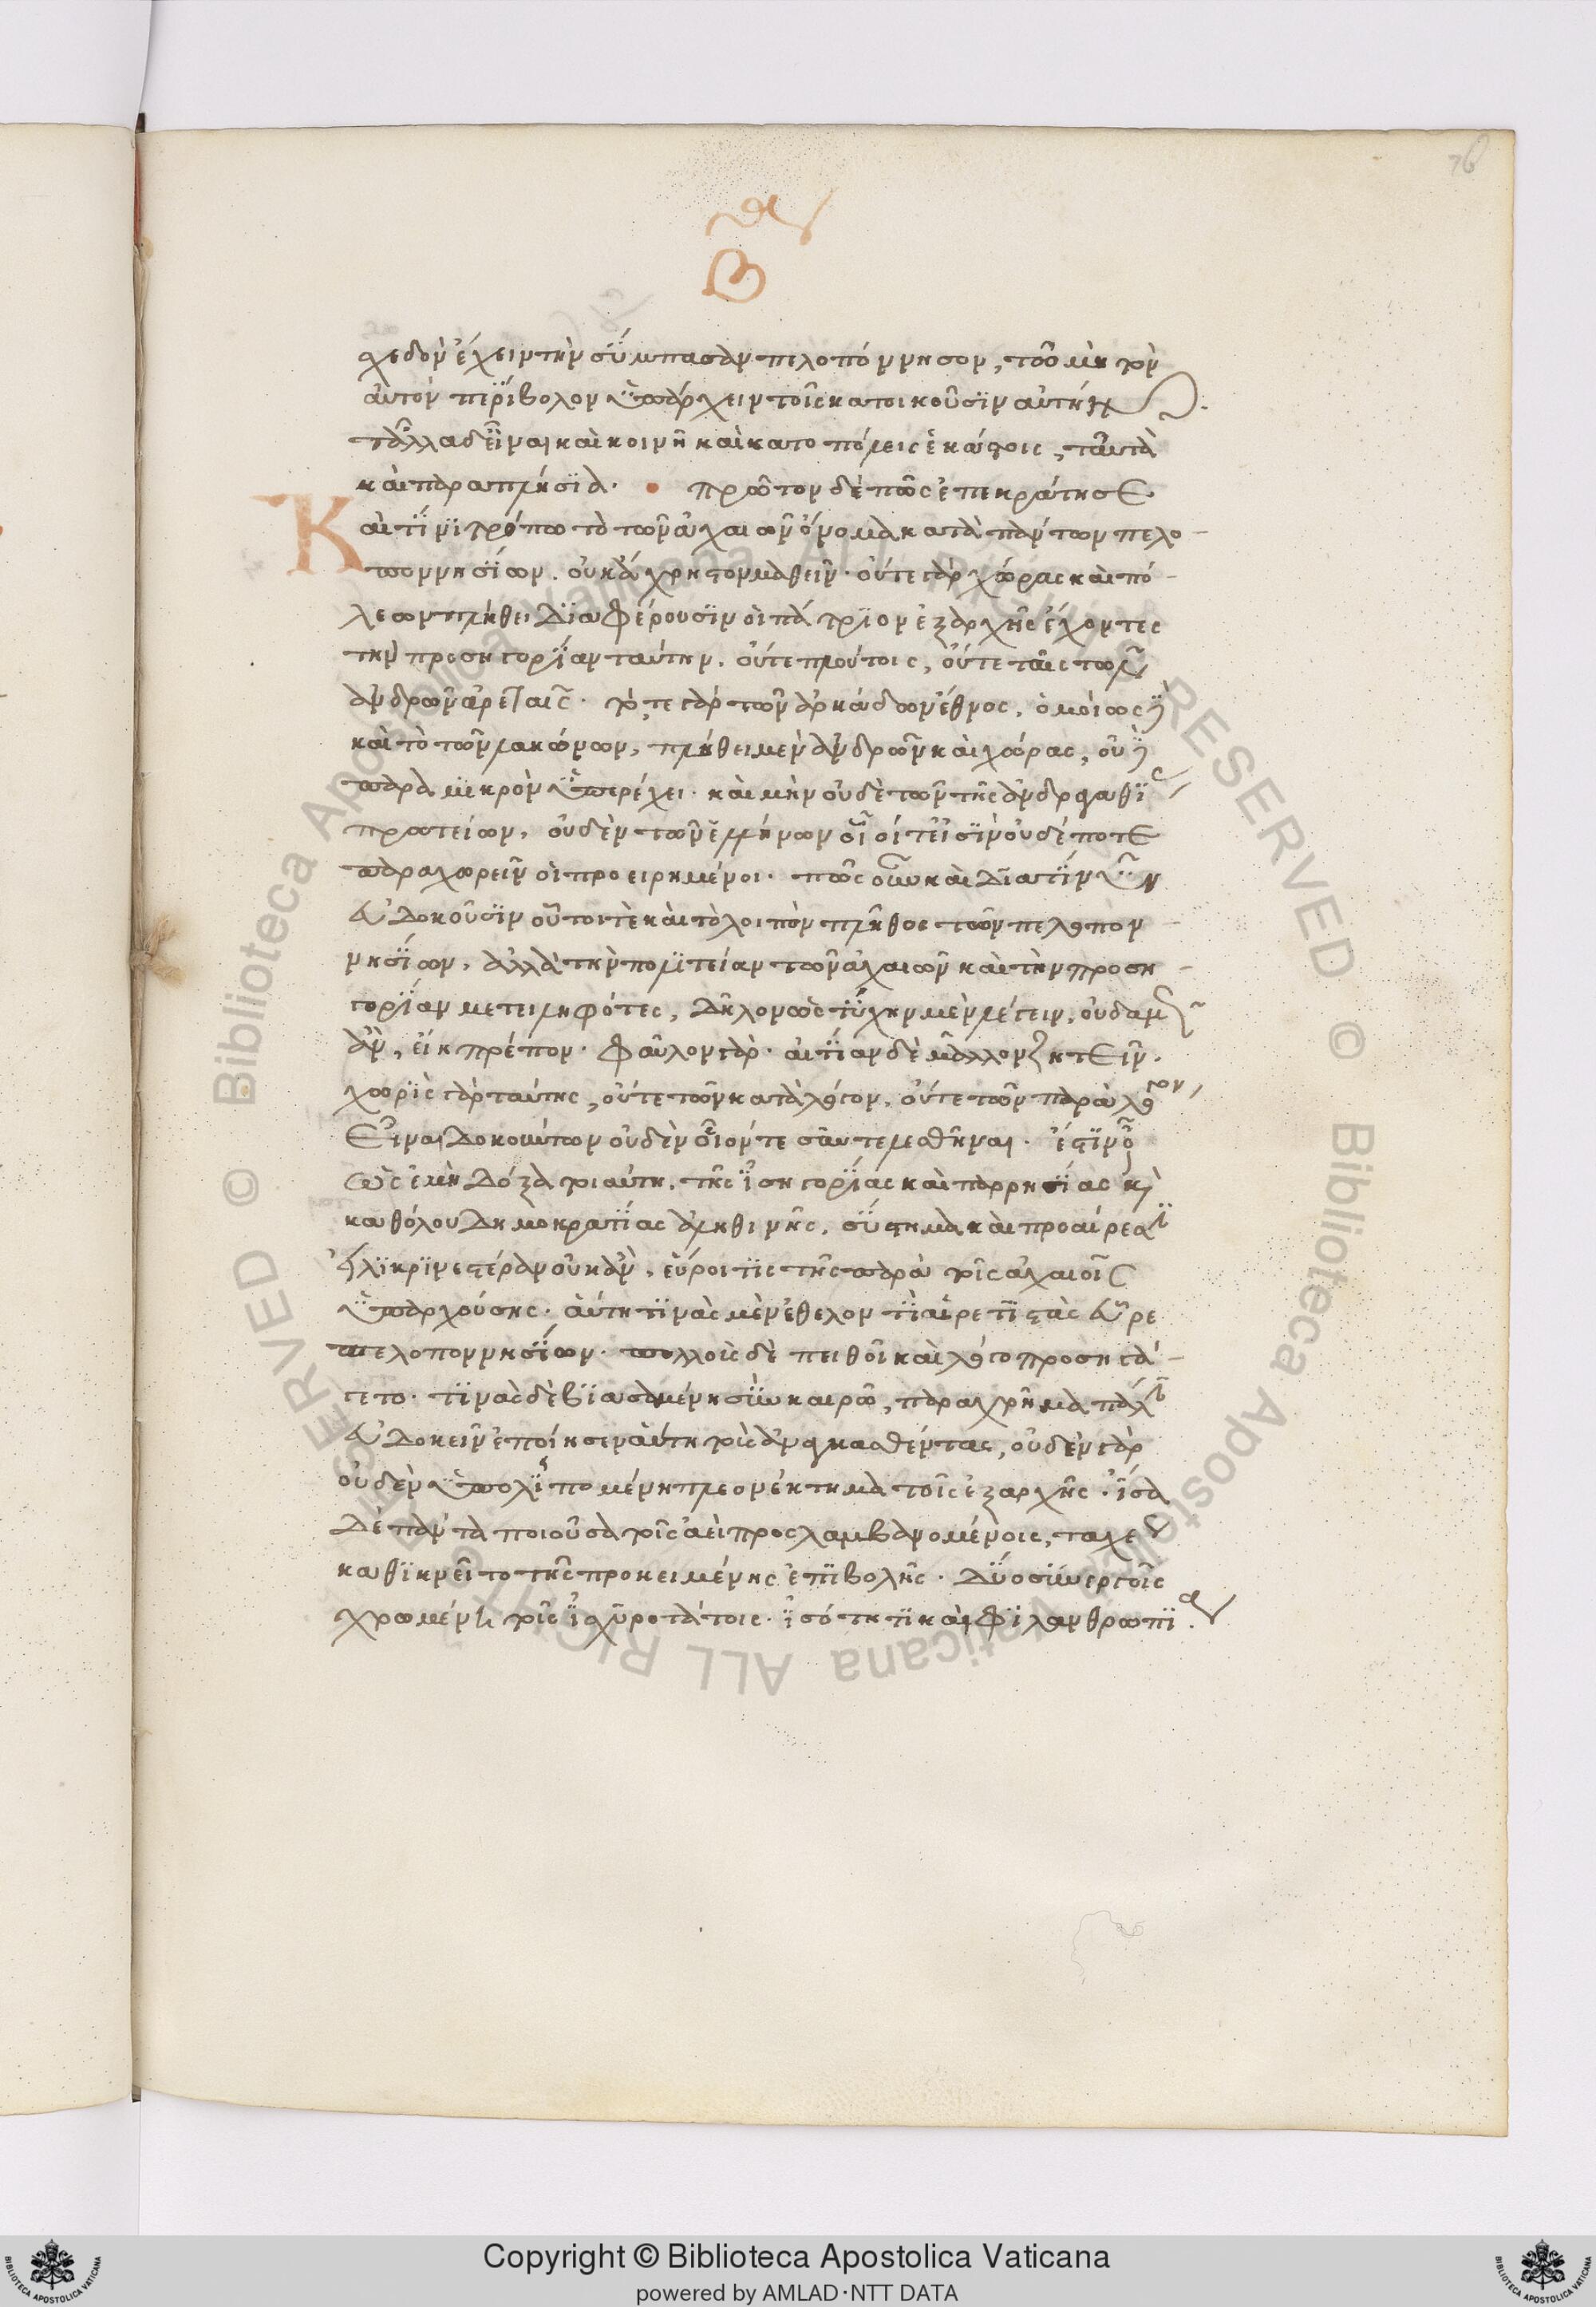 76
Β
σχεδὸν ἔχειν τὴν σύμπασαν πελοπόννησον, τῶ μὴ τὸν
αὐτὸν περίβολον ὑπάρχειν τοῖς κατοικοῦσιν αὐτήν.
τἄλλα δ' εἶναι καὶ κοινῆ καὶ κατὰ πόλεις ἑκάστοις, ταὐτὰ
καὶ παραπλήσια. πρῶτον δὲ πῶς ἐπεκράτησε
Καὶ τίνι τρόπω τὸ τῶν ἀχαιῶν ὄνομα κατὰ πάντων πελο-
ποννησίων. οὐκ ἄχρηστον μαθεῖν. οὔτε γὰρ χώρας καὶ πό-
λεων πλήθει διαφέρουσιν οἱ πάτριον ἐξ ἀρχῆς ἔχοντες
τὴν προσηγορίαν ταύτην. οὔτε πλούτοις, οὔτε ταῖς τῶν
ἀνδρῶν ἀρεταῖς. τό, τε γὰρ τῶν ἀρκάδων ἔθνος, ὁμοίως δὲ
καὶ τὸ τῶν λακώνων, πλήθει μὲν ἀνδρῶν καὶ χώρας, οὐδὲ
παρὰ μικρὸν ὑπερέχει. καὶ μὴν οὐδὲ τῶν τῆς ἀνδραγαθίας
πρωτείων, οὐδὲν τῶν ἑλλήνων οἷοί τ' εἰσὶν οὐδέποτε
παραχωρεῖν οἱ προειρημένοι. πῶς οὖν καὶ διατί νῦν
εὐδοκοῦσιν οὗτοί τε καὶ τὸ λοιπὸν πλῆθος τῶν πελοπον-
νησίων, ἀλλὰ τὴν πολιτείαν τῶν ἀχαιῶν καὶ τὴν προση-
γορίαν μετειληφότες, δῆλον ὡς τύχην μὲν λέγειν, οὐδαμῶς
ἂν, εἴη πρέπον. φαῦλον γάρ. αἰτίαν δὲ μᾶλλον ζητεῖν.
χωρὶς γὰρ ταύτης, οὔτε τῶν κατὰ λόγον, οὔτε τῶν παρὰ λόγον
εἶναι δοκούντων οὐδὲν οἷόν τε συντελεσθῆναι. ἔστιν δ'
ὡς ἐμὴ δόξα τοιαύτη. τῆς ἰσηγορίας καὶ παρρησίας καὶ
καθόλου δημοκρατίας ἀληθινῆς, σύστημα καὶ προαίρεσιν
εἰλικρινεστέραν οὐκ ἂν, εὕροι τις τῆς παρὰ τοῖς ἀχαιοῖς
ὑπαρχούσης. αὕτη τινὰς μὲν ἐθελοντὶ αἱρετιστὰς εὗρε
πελοποννησίων. πολλοὺς δὲ πειθοῖ καὶ λόγω προσηγά-
γετο. τινὰς δὲ βιασαμένη σὺν καιρῶ, παραχρῆμα πάλιν
εὐδοκεῖν ἐποίησεν αὐτῆ τοὺς ἀναγκασθέντας, οὐδενὶ γὰρ
οὐδὲν ὑπολιπομένη πλεονέκτημα τοῖς ἐξ ἀρχῆς. ἴσα
δὲ πάντα ποιοῦσα τοῖς ἀεὶ προσλαμβανομένοις, ταχέως
καθικνεῖτο τῆς προκειμένης ἐπιβολῆς. δύο συνεργοῖς
χρωμένη τοῖς ἰσχυροτάτοις. ἰσότητι καὶ φιλανθρωπία.
Copyright © Biblioteca Apostolica Vaticana
powered by AMLAD·NTT DATA